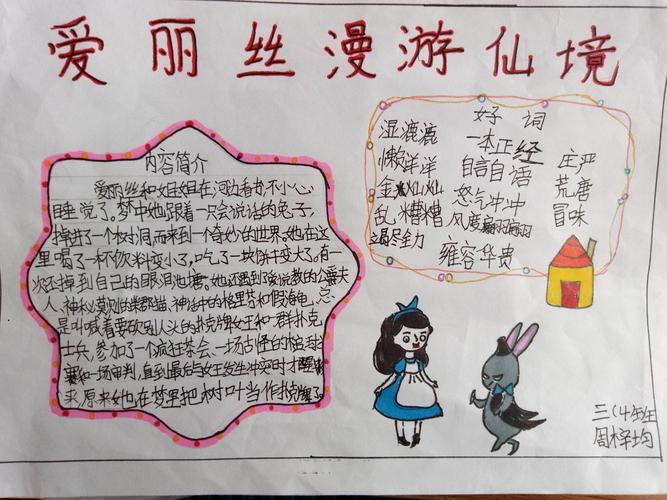 爱丽丝漫游仙境
内容简介
爱丽丝和姐姐在河边看书不小心
睡觉了。梦中她跟着一只会说话的兔子,
掉进了一个树洞,而来到一个奇妙的世界。她在这
里喝了一杯饮料变小了,吃了一块饼干变大了。有
一次还掉到自己的眼泪池塘。她还遇到了爱说教的公爵夫
人、神秘莫测的柴郡猫、神话中的格里芬和假海龟、总
是叫喊着要砍别人头的扑克牌女王和一群扑克
士兵,参加了一个疯狂茶会、一场古怪的槌球
赛和一场审判,直到最后与女王发生冲突时才醒
来原来她在梦里把树叶当作扑克牌了
好词
湿漉漉 一本正经 庄严
懒洋洋 自言自语 荒唐
金灿灿 怒气冲冲 冒味
乱糟糟 风度翩翩
竭尽全力 雍容华贵
三(4)班
周梓均